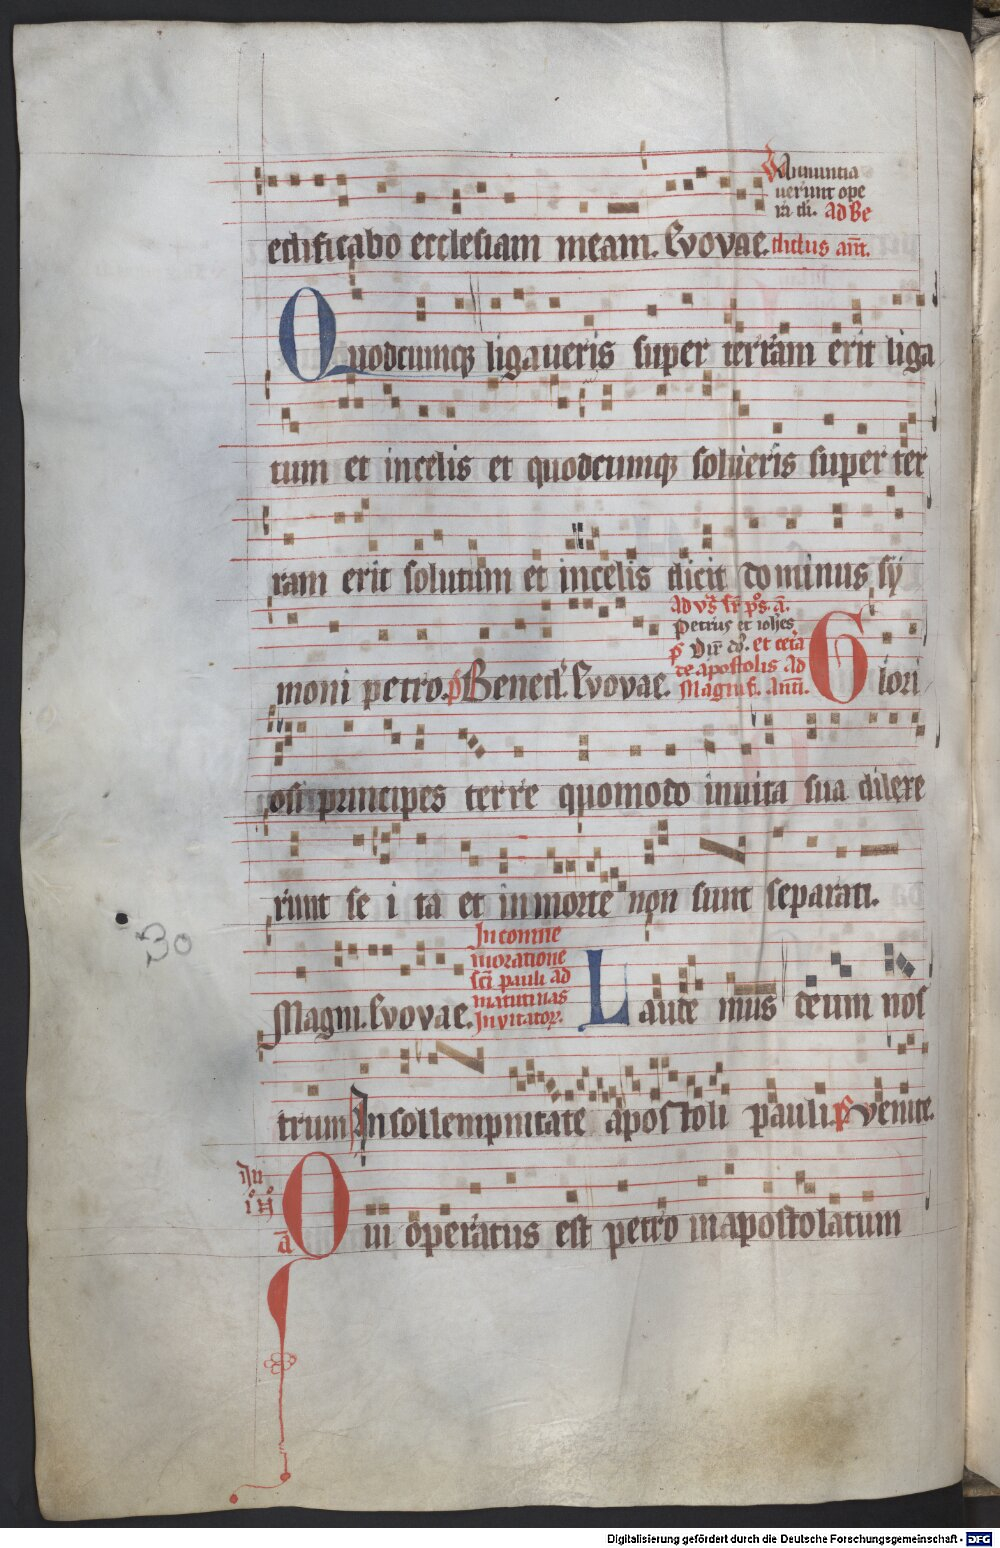 edificabo ecclesiam meam. Evovae.
Annuntia
verunt ope
ra di. ad Be
dictus ant.
Quodcumq ligaveris super terram erit liga
tum et in celis et quodcumq solveris super ter
ram erit solutum et in celis dicit dominus sy
moni petro. p Bened. Evovae.
Petrus et iohes
et cete
re apostolis ad
Magnif. Ant.
Glori
osi principes terre quomodo in vita sua dilexe
runt se i ta et in morte non sunt separati.
Magni. Evovae.
In comme
moratione
sci pauli ad
matutinas
Invitator.
Laude mus deum nos
trum In sollempnitate apos toli pauli. ps venite.
In
i n
a
Qui operatus est petro in apostolatum
30
Digitalisierung gefördert durch die Deutsche Forschungsgemeinschaft - DFG